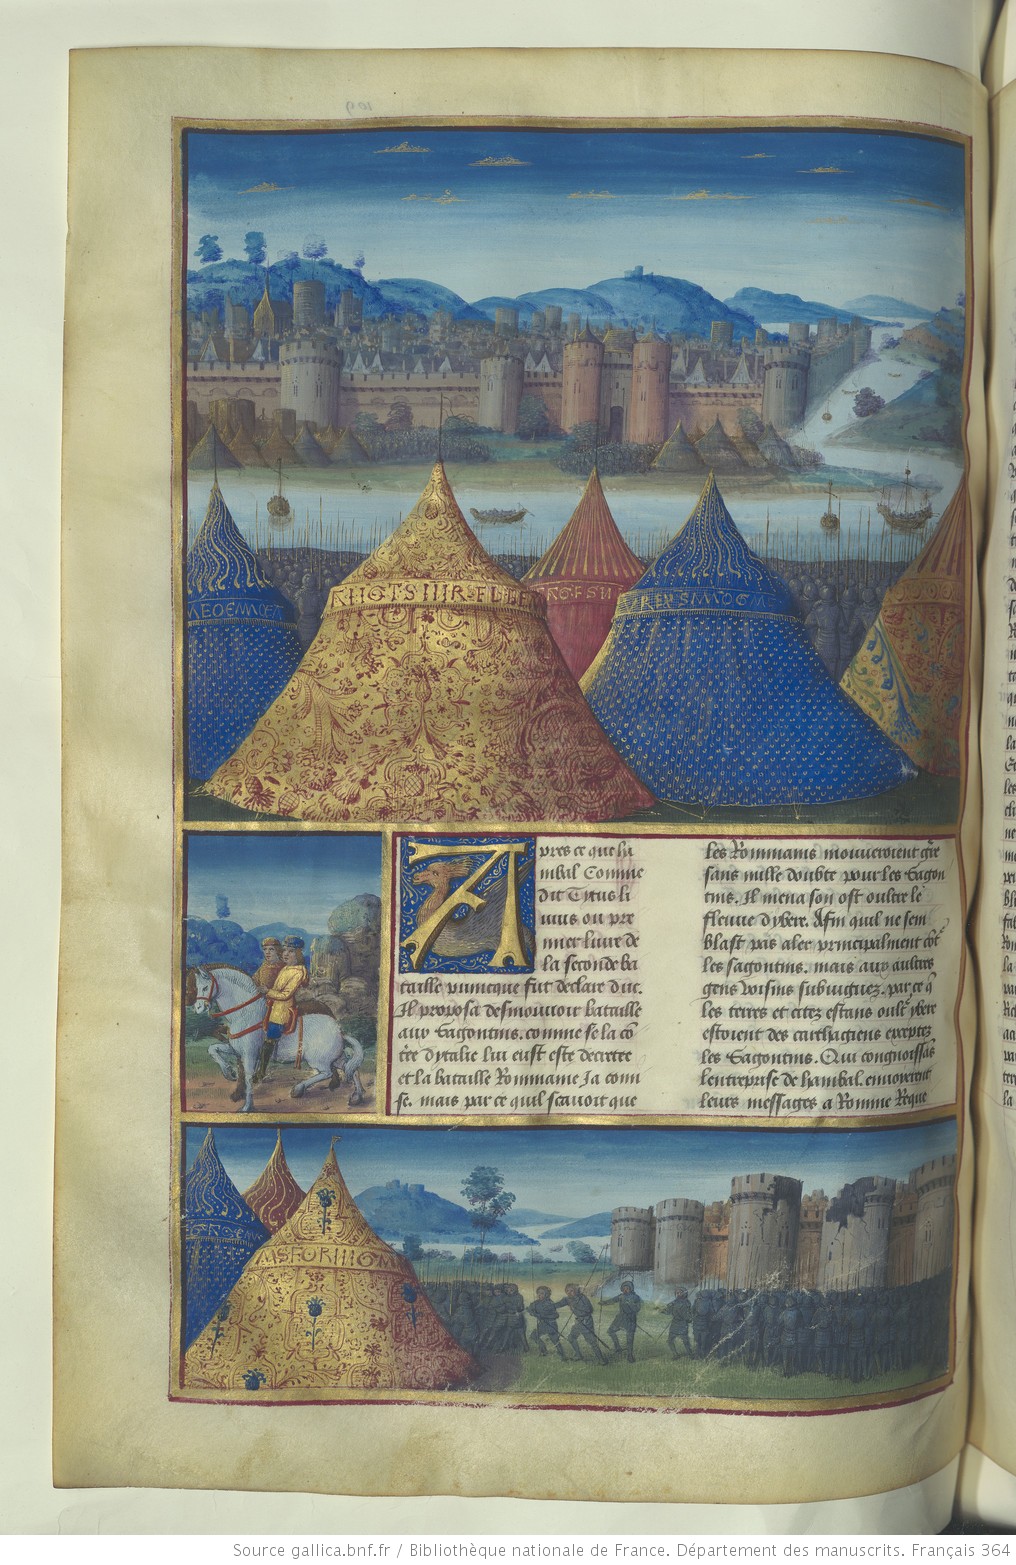 pres ce que ha
nibal Comme
dit Tytus li
uius ou pre
mier liure de
la seconde ba
taille punicque fut declare duc.
Il proposa desmouuoir bataille
aux Sagontins. comme se la co͂
tre dytalie lui eust este decretee
et la bataille Rommaine Ja comi
se. mais par ce quil scauoit que
les Rommains mouueroient gr̃e
sans nulle doubte pour les sagon
tins. Il mena son ost oultre le
fleuue dybere. Afin quil ne sem
blast pas aler principalment co͂t
les sagontins. mais aux aultres
gens voisins subiuguez. par ce q̃
les terres et citez estans oult̃ ybere
estoient des carthagiens exeptez
les Sagontins. Qui congnoissãs
lentreprise de hanibal. enuoierent
leurs messages a Romme Reque
Source gallica.bnf.fr / Bibliothèque nationale de France. Département des manuscrits. Français 364